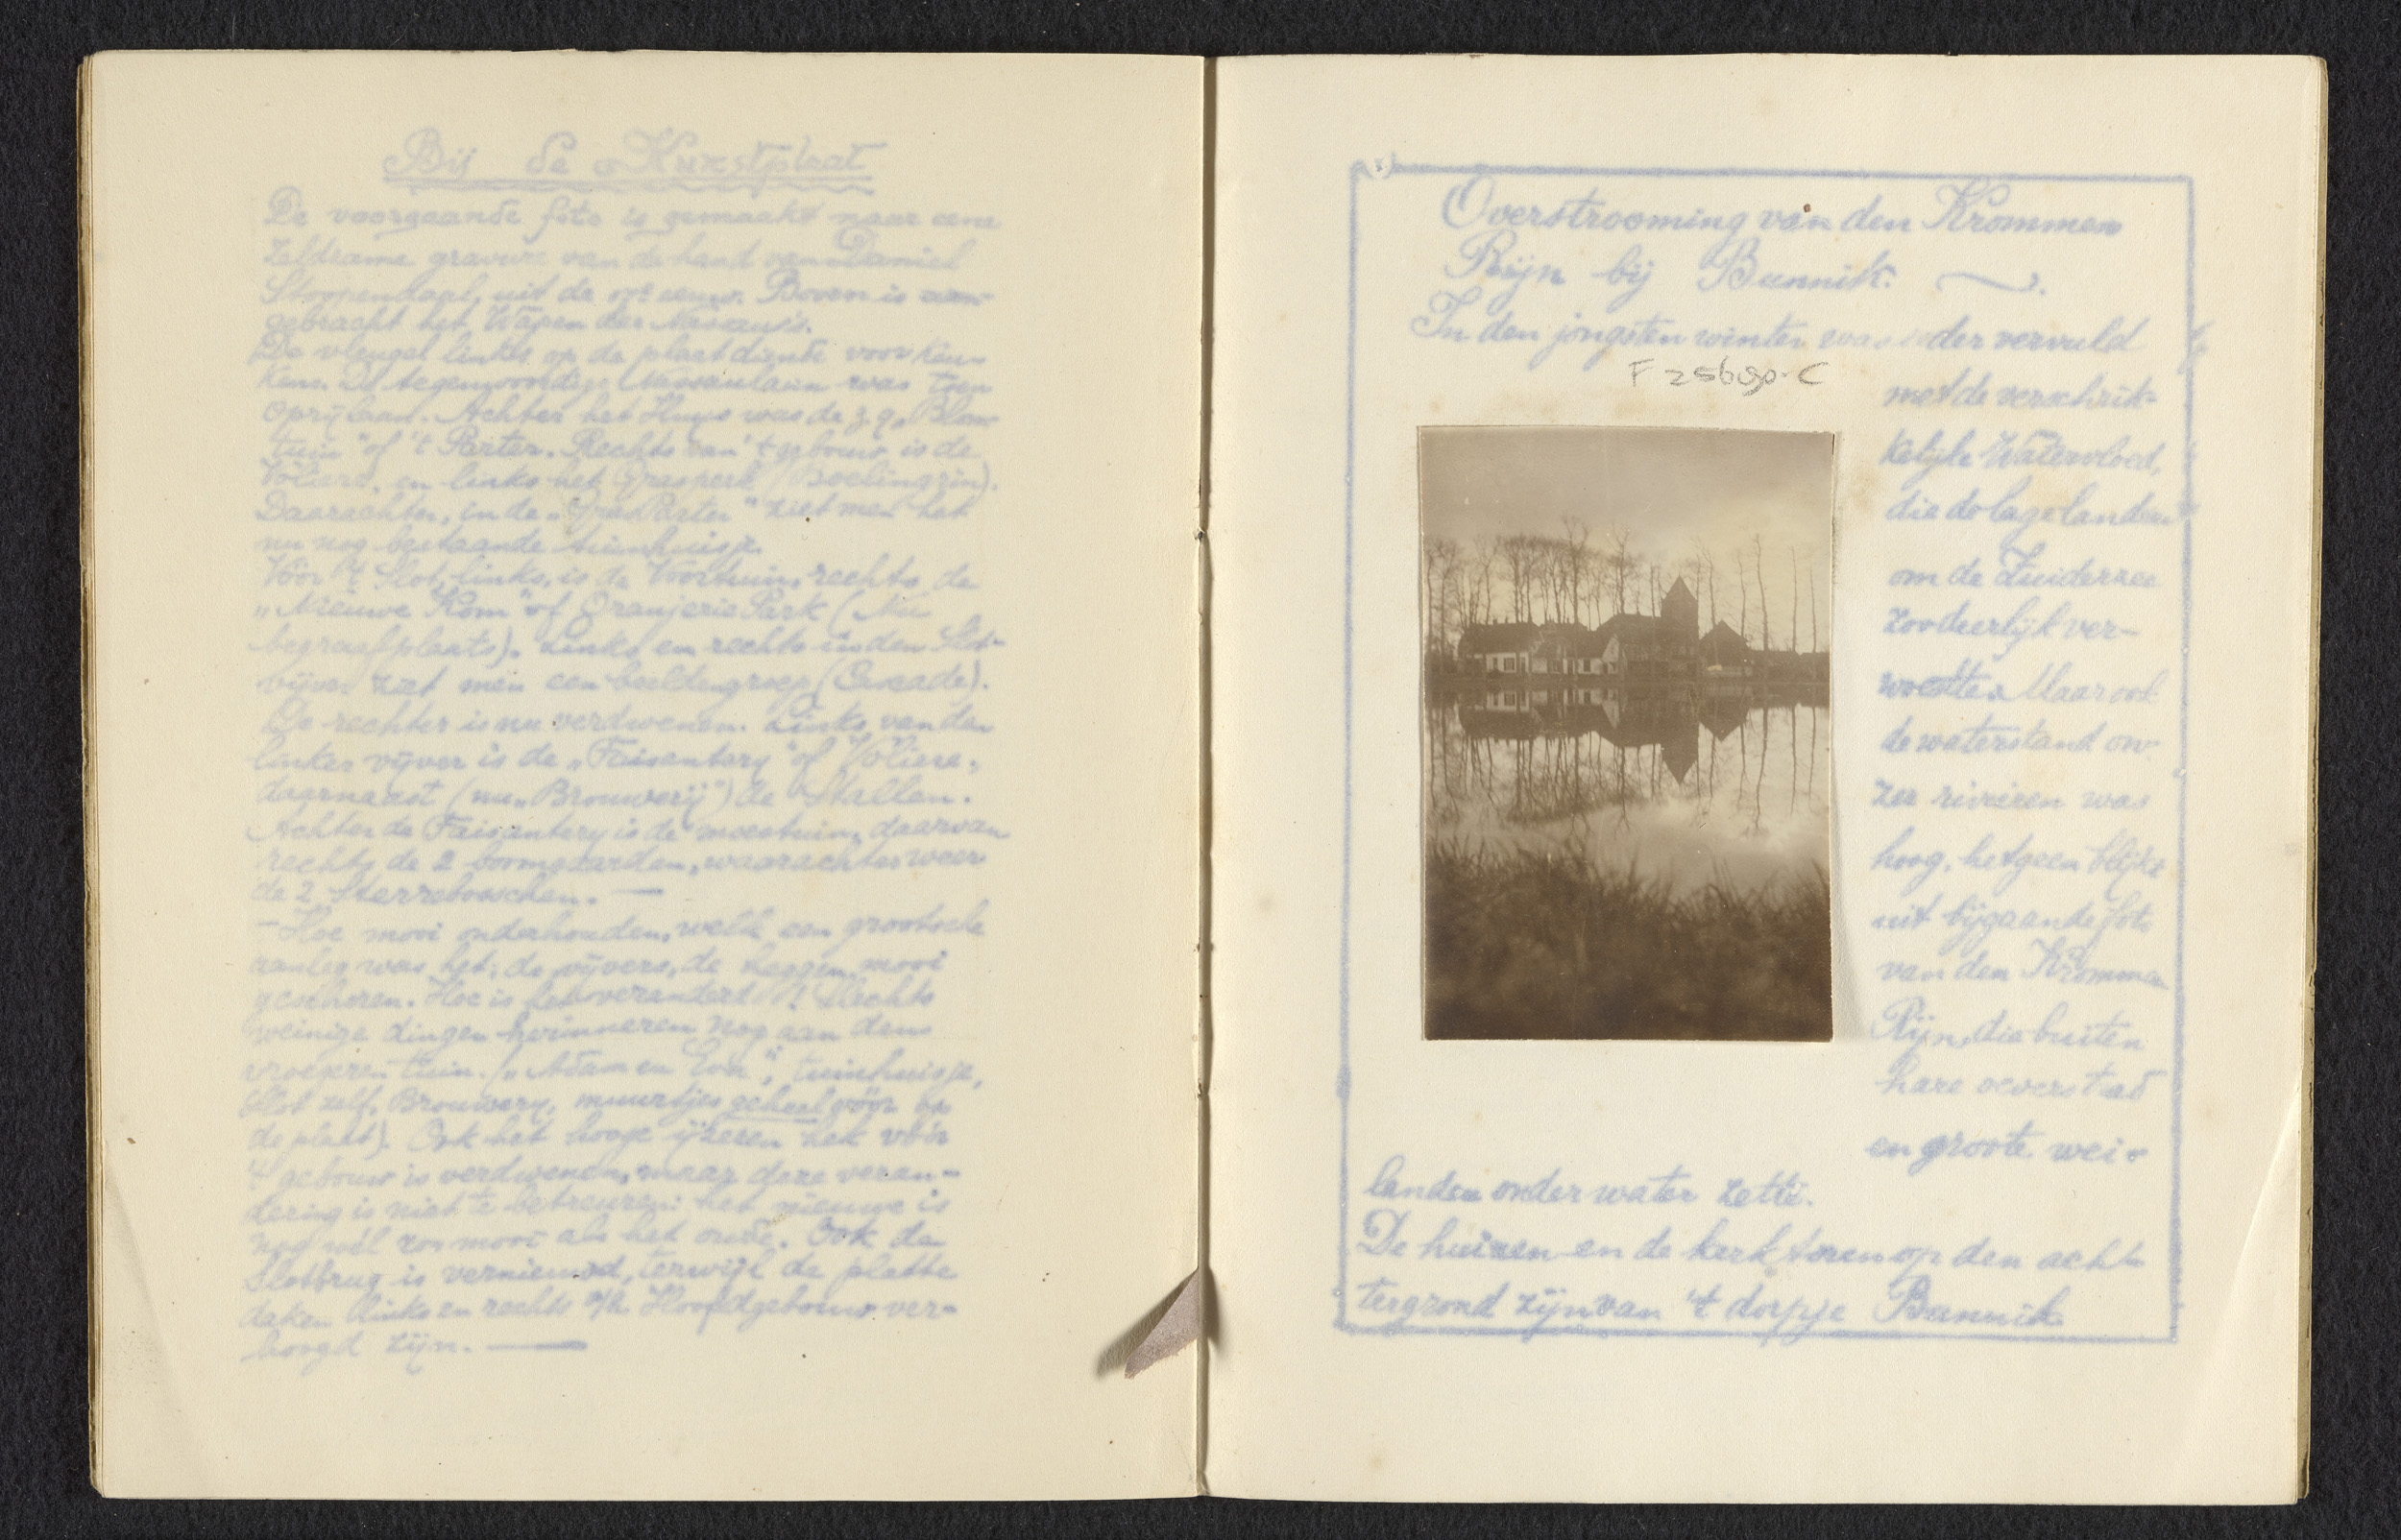 Bij de Kunstplaat
De voorgaande foto is gemaakt naar eene
zeldzame gravure van de hand van Daniel
Stoopendaal, uit de 17e eeuw. Boven is aan-
gebracht het Wapen der Nassau's.
De vleugel links op de plaat diende voor keu-
kens. De tegenwoordige Nassaulaan was toen
oprijlaan. Achter het Huys was de z.g. „Blom-
tuin" of 't Parter. Rechts van 't gebouw is de
Volière, en links het Grasperk (Boelingrin).
Daarachter, in de „Gras Parter" ziet men het
nu nog bestaande tuinhuisje.
Vóór 't Slot, links, is de Voortuin, rechts de
„Nieuwe Kom" of Oranjerie Park (Nu
begraafplaats). Links en rechts in den Slot-
vijver ziet men een beeldengroep (Cascade).
De rechter is nu verdwenen. Links van den
linker vijver is de „Faisantery" of Volière,
daarnaast (nu „Brouwerij") de Stallen.
Achter de Faisantery is de moestuin, daarvan
rechts de 2 boomgaarden, waarachter weer
de 2 Sterrebosschen. —
— Hoe mooi onderhouden, welk een grootsche
aanleg was het; de vijvers, de heggen mooi
geschoren. Hoe is het veranderd! Slechts
weinige dingen herinneren nog aan dens
vroegeren tuin. („Adam en Eva", tuinhuisje,
Slot zelf, Brouwery, muurtjes geheel vóór op
de plaat). Ook het hooge ijzeren hek vóór
't gebouw is verdwenen, maar deze veran-
dering is niet te betreuren: het nieuwe is
nog wél zoo mooi als het oude. Ook de
Slotbrug is vernieuwd, terwijl de platte
daken links en rechts v/h Hoofdgebouw ver-
hoogd zijn. —
Overstrooming van den Krommen
Rijn bij Bunnik.
In den jongsten winter was ieder vervuld
F 25690-C
met de verschrik-
kelijke Watervloed,
die de lage landen
om de Zuiderzee
zoo deerlijk ver-
woestte. Maar ook
de waterstand on-
zer rivieren was
hoog, hetgeen blijkt
uit bijgaande foto
van den Krommen
Rijn, die buiten
hare oevers trad
en groote wei-
landen onder water zette.
De huizen en de kerktoren op den ach-
tergrond zijn van 't dorpje Bunnik